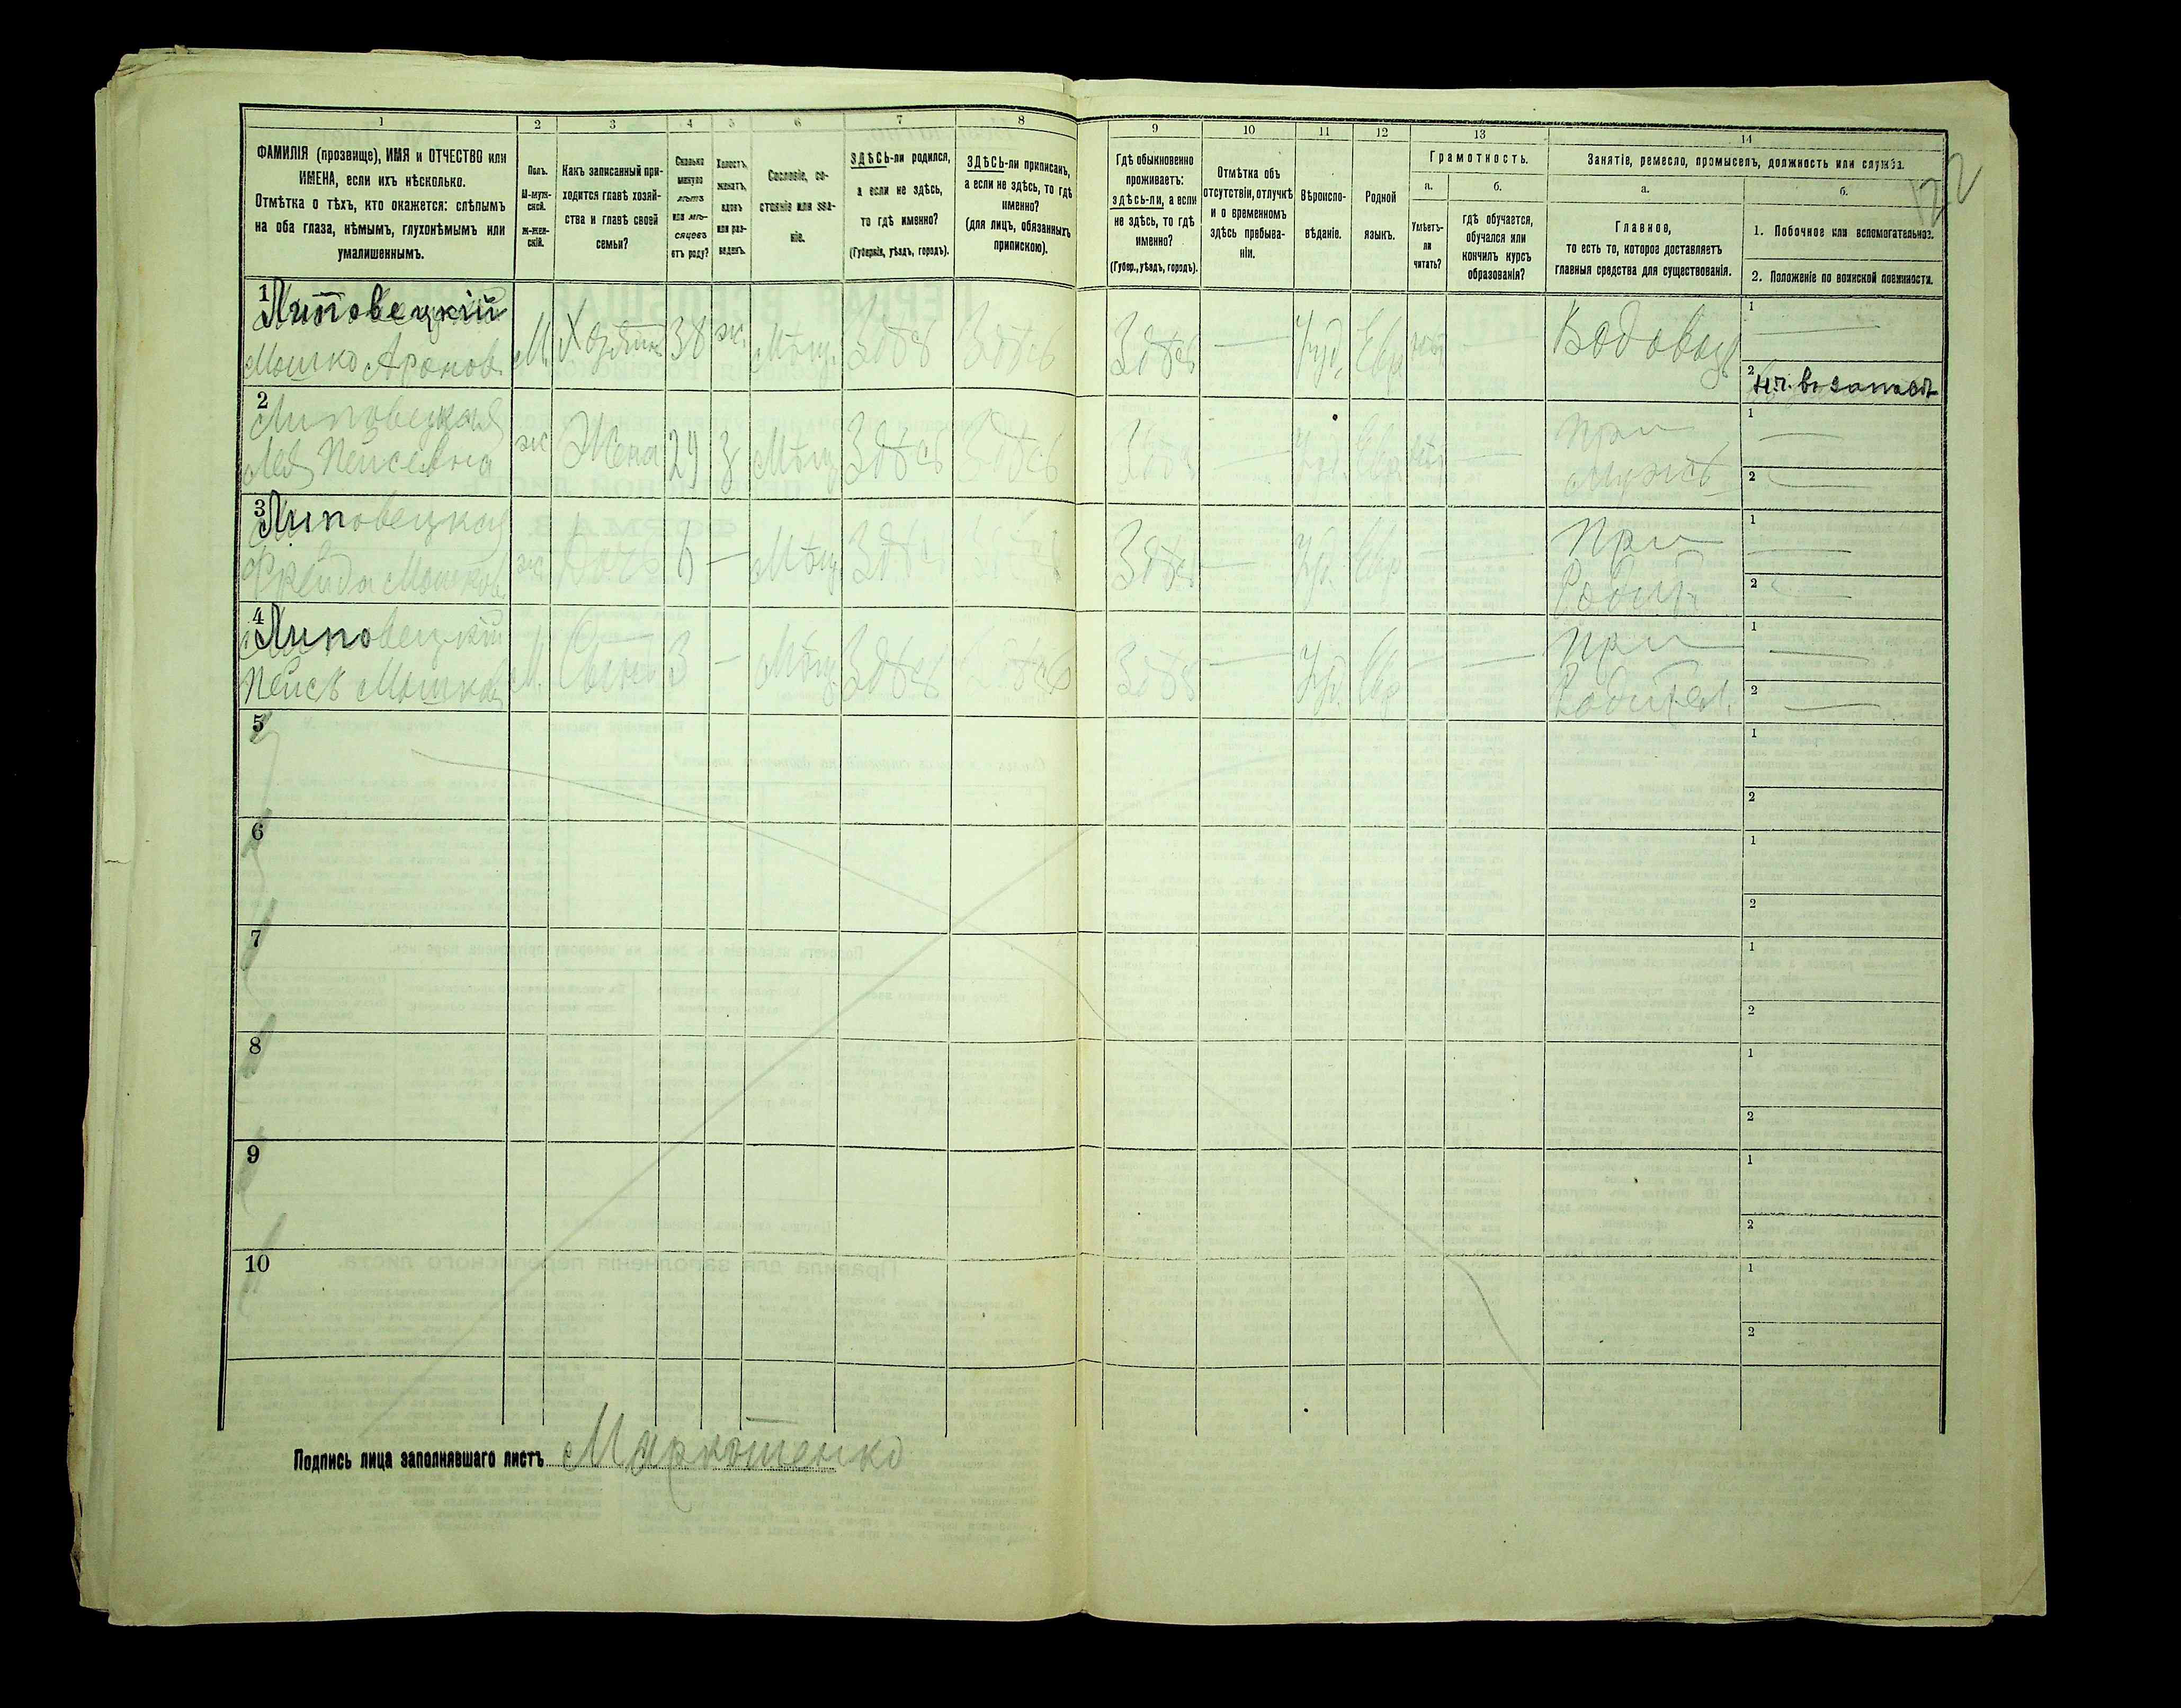 1
2
3
4
5
6
7
8
ФАМИЛІЯ (прозвище), ИМЯ и ОТЧЕСТВО или
ИМЕНА, если ихъ нѣсколько.
Отмѣтка о тѣхъ, кто окажется: слѣпымъ
на оба глаза, нѣмымъ, глухонѣмымъ или
умалишеннымъ.
Полъ.
М-муж-
ской.
Ж-жен-
скій.
Какъ записанный при-
ходится главѣ хозяй-
ства и главѣ своей
семьи?
Сколько
минуло
лѣтъ
или мѣ-
сяцевъ
отъ роду?
Холостъ,
женатъ,
вдовъ
или раз-
веденъ.
Сословіе, со-
стояніе или зва-
ніе.
ЗДѢСЬ-ли родился,
а если не здѣсь,
то гдѣ именно?
(Губернія, уѣздъ, городъ).
ЗДѢСЬ-ли приписанъ,
а если не здѣсь, то гдѣ
именно?
(для лицъ, обязанныхъ
припискою).
9
10
11
12
13
14
Гдѣ обыкновенно
проживаетъ:
здѣсь-ли, а если
не здѣсь, то гдѣ
именно?
(Губер., уѣздъ, городъ).
Отмѣтка объ
отсутствіи, отлучкѣ
и о временномъ
здѣсь пребыва-
ніи.
Вѣроиспо-
вѣданіе.
Родной
языкъ.
Грамотность.
а.
б.
Умѣетъ-
ли
читать?
гдѣ обучается,
обучался или
кончилъ курсъ
образованія?
Занятіе, ремесло, промыселъ, должность или служба.
а.
б.
Главное,
то есть то, которое доставляетъ
главныя средства для существованія.
1. Побочное или вспомогательное.
2. Положеніе по воинской повинности.
122
1 Липовецкій
Мошко Аронов.
М.
Хозяинъ
38
ж.
Мѣщ.
Здѣсь
Здѣсь
Здѣсь
—
Іуд.
Евр
—
Водовозъ
1 —
2
2 Липовецкая
Лея Пейсевна
ж
Жена
29
З
Мѣщ
Здѣсь
Здѣсь
Здѣсь
—
Іуд.
Евр
—
При
Мужѣ
1 —
2 —
3 Липовецкая
Фрейда Мошков.
ж
Дочь
6
—
Мѣщ.
Здѣсь
Здѣсь
Здѣсь
—
Іуд.
Евр
—
—
При
Родит.
1 —
2 —
4 Липовецкій
Пейсъ Мошков
М.
Сынъ
3
—
Мѣщ.
Здѣсь
Здѣсь
Здѣсь
—
Іуд.
Евр
—
—
При
Родител.
1 —
2 —
5
1
2
6
1
2
7
1
2
8
1
2
9
1
2
10
1
2
Подпись лица заполнявшаго листъ